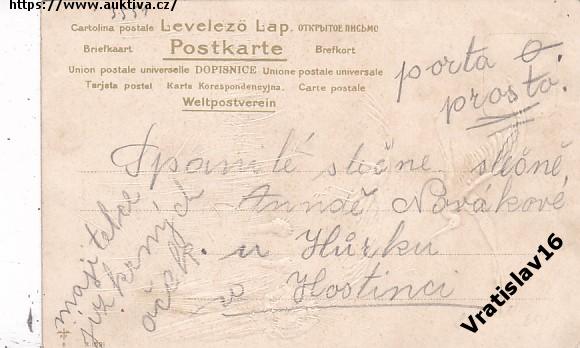 https://www.auktiva.cz/
Cartolina postale Levelezö Lap. ОТКРЫТОЕ ПИСЬМО
Briefkaart Postkarte Brefkort
Union postale universelle DOPISNICE Unione postale universale
Tarjeta postel Karta Korespondencyjna. Carte postale
Weltpostverein
porta
prosto.
Spanilé slečne, slečně
Annně Novákové
u Hůrku
v Hostinci
majitelce
jiskrných
oček
Vratislav16